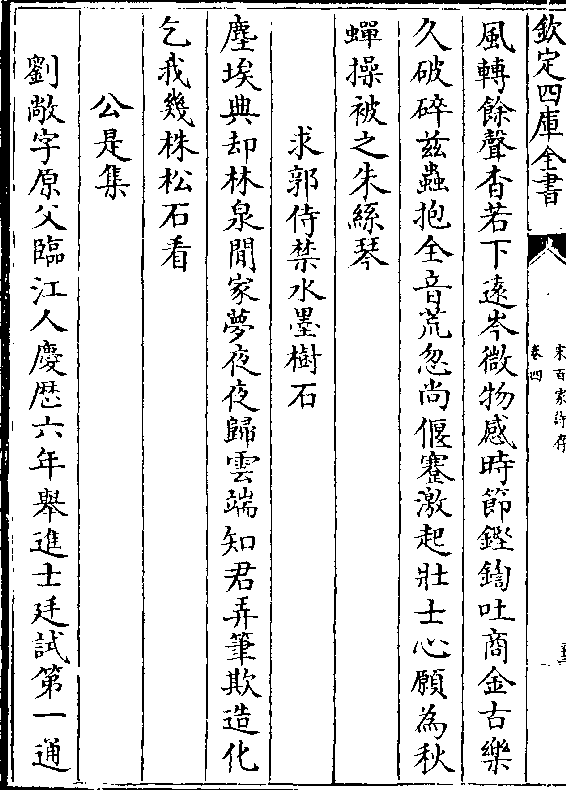 欽定四庫全書
宋百家詩存
卷四
風轉餘聲杳若下遠岑微物感時節鏗鍧吐商金古樂
久破碎兹蟲抱全音荒忽尚偃蹇激起壯士心願為秋
蟬操被之朱絲琴
求郭侍禁水墨樹石
塵埃典却林泉閒家夢夜夜歸雲端知君弄筆欺造化
乞我幾株松石看
公是集
劉敞字原父臨江人慶歴六年舉進士廷試第一通